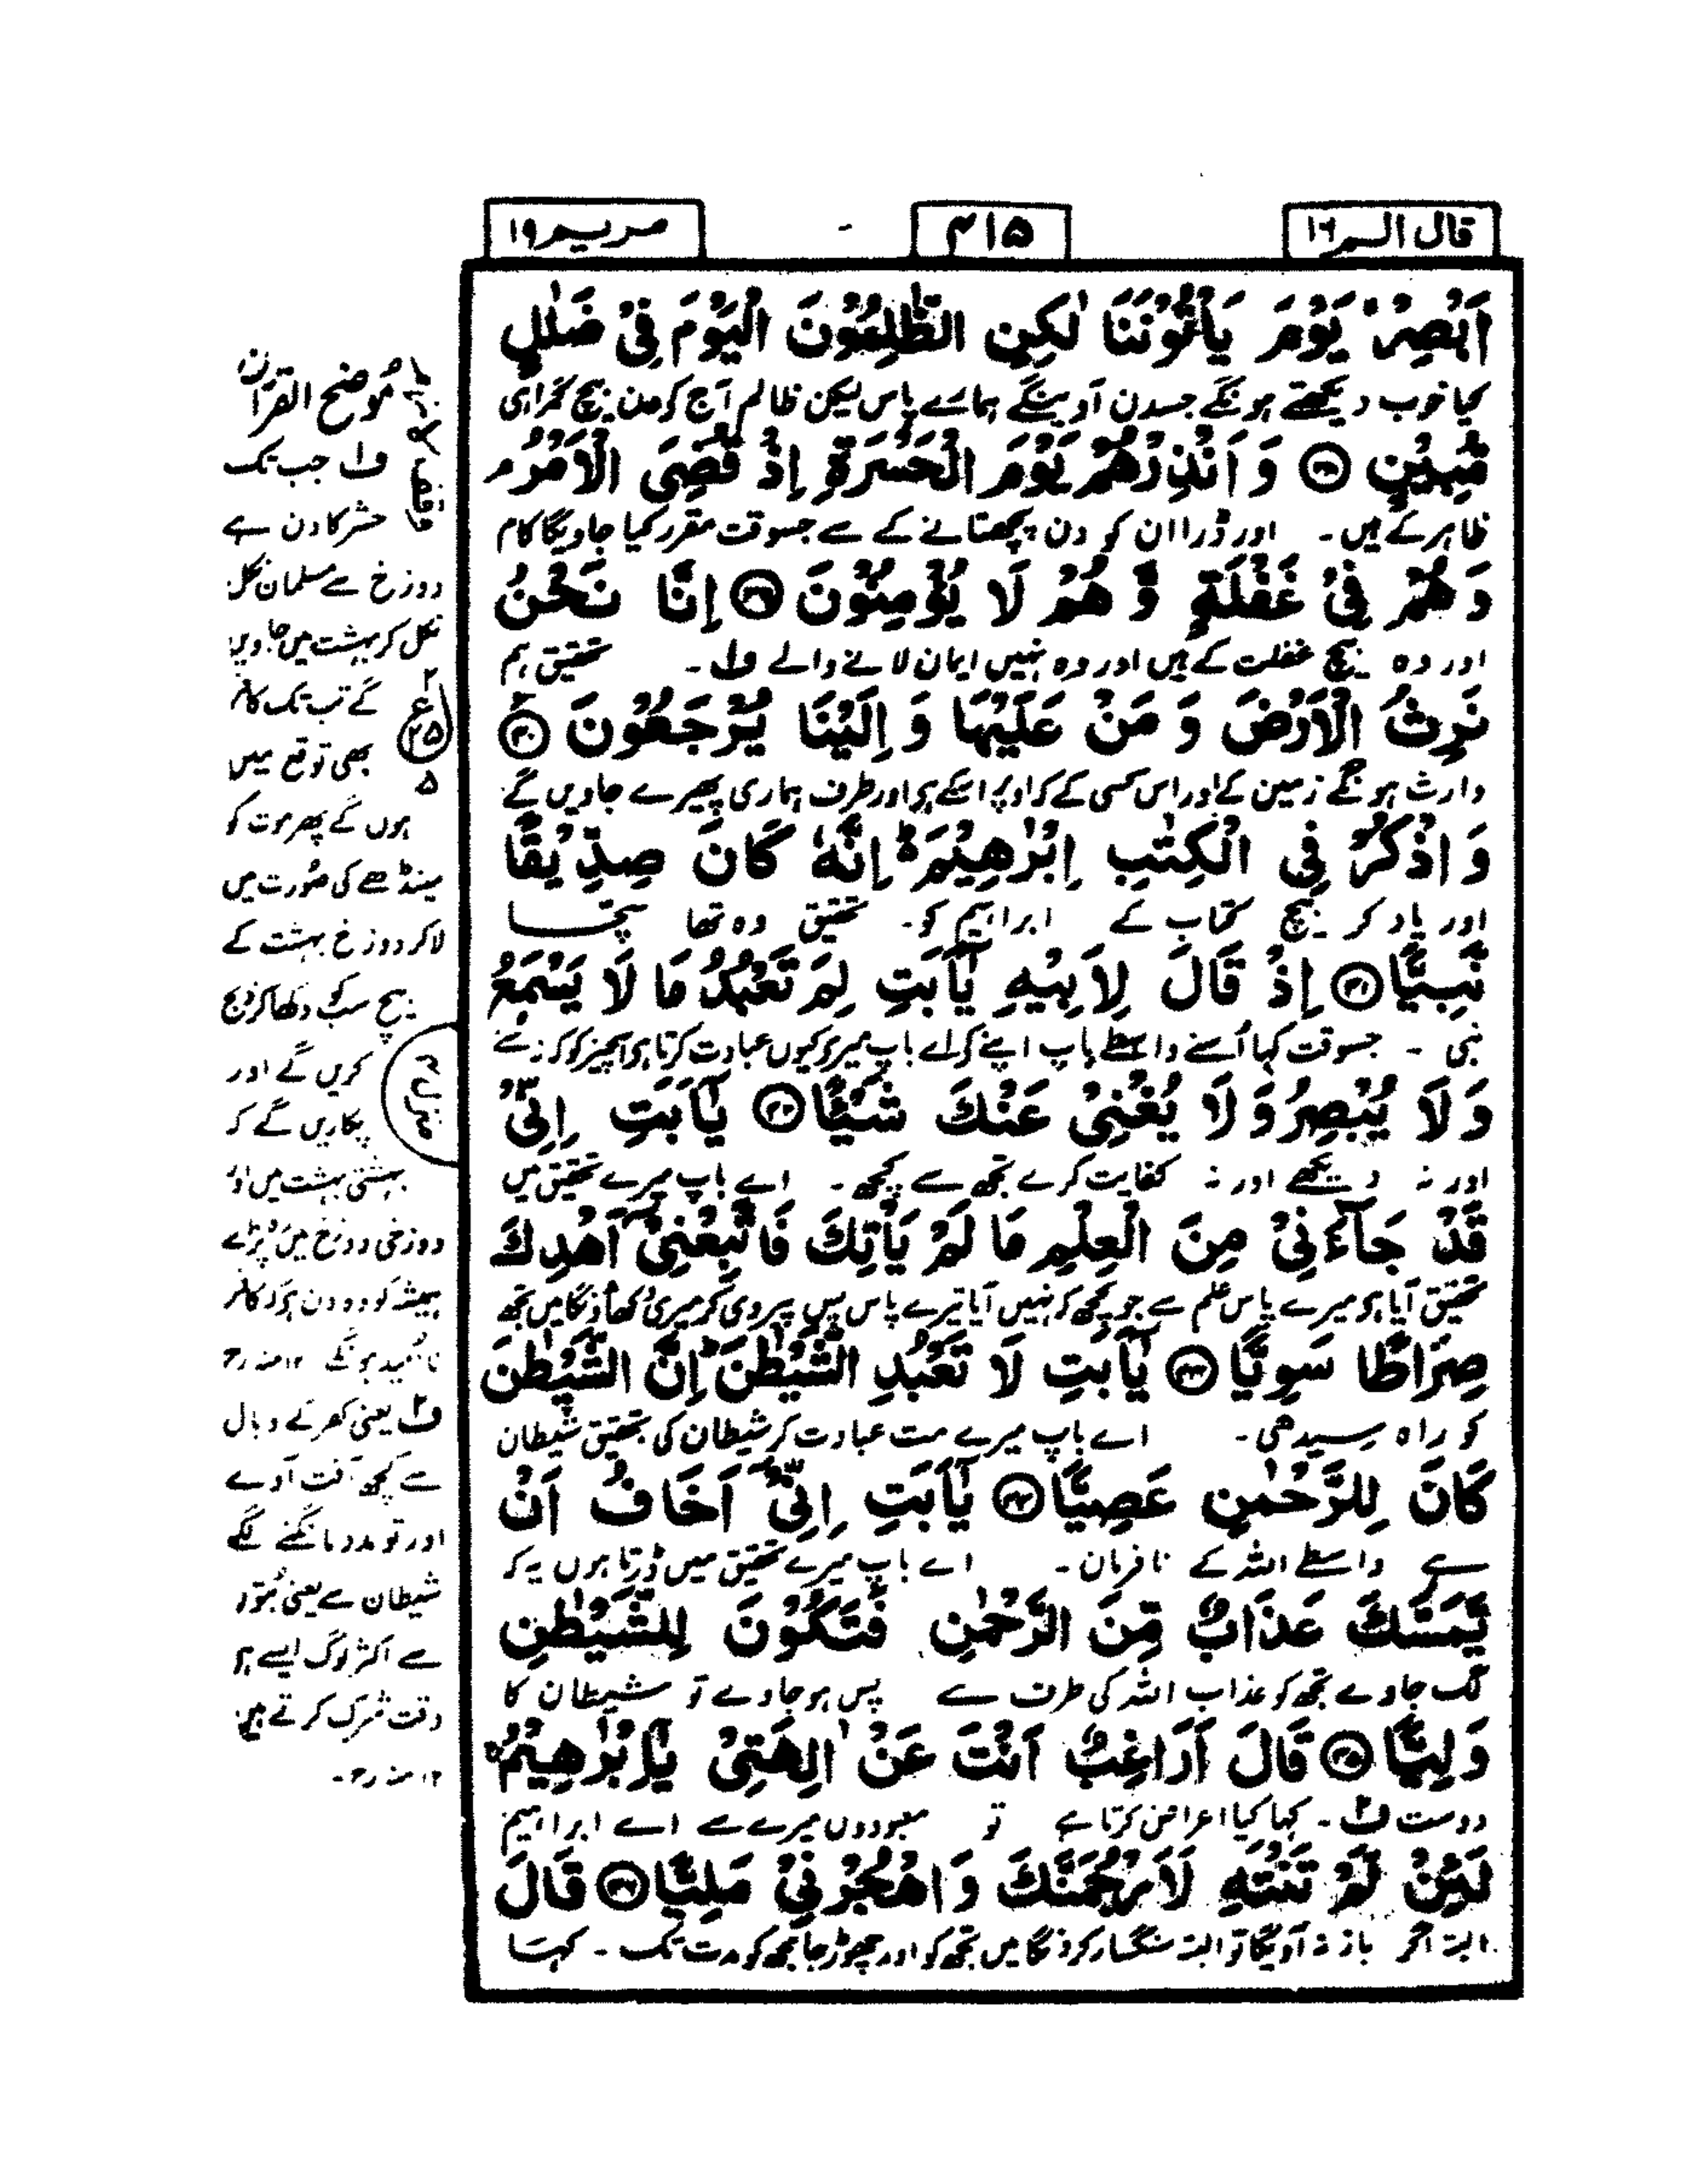 قال الم ۱۶
۴۱۵
مریم ۱۹
اَبْصِرْ ۙ یَوْمَ یَاْتُوْنَنَا لٰكِنِ الظّٰلِمُوْنَ الْیَوْمَ فِیْ ضَلٰلٍ
کیا خوب دیکھتے ہونگے جسدن آوینگے ہمارے پاس لیکن ظالم آج کے دن بیچ گمراہی
مُّبِیْنٍ ﴿۳۸﴾ وَ اَنْذِرْهُمْ یَوْمَ الْحَسْرَةِ اِذْ قُضِیَ الْاَمْرُ ۘ
ظاہر کے ہیں۔ اور ڈرا ان کو دن پچھتانے کے سے جسوقت مقرر کیا جاویگا کام
وَ هُمْ فِیْ غَفْلَةٍ وَّ هُمْ لَا یُؤْمِنُوْنَ ﴿۳۹﴾ اِنَّا نَحْنُ
اور وہ بیچ غفلت کے ہیں اور وہ نہیں ایمان لانے والے ف۱۔ تحقیق ہم
نَرِثُ الْاَرْضَ وَ مَنْ عَلَیْهَا وَ اِلَیْنَا یُرْجَعُوْنَ ﴿۴۰﴾
وارث ہونگے زمین کے اور اس کسی کے کہ اوپر اسکے ہے اور طرف ہماری پھیرے جاویں گے
وَ اذْكُرْ فِی الْكِتٰبِ اِبْرٰهِیْمَ ؕ اِنَّهٗ كَانَ صِدِّیْقًا
اور یاد کر بیچ کتاب کے ابراہیم کو۔ تحقیق وہ تھا سچا
نَّبِیًّا ﴿۴۱﴾ اِذْ قَالَ لِاَبِیْهِ یٰۤاَبَتِ لِمَ تَعْبُدُ مَا لَا یَسْمَعُ
نبی ۔ جسوقت کہا اُسنے واسطے باپ اپنے کے اے باپ میرے کیوں عبادت کرتا ہے اسچیز کو کہ نہ سنے
وَ لَا یُبْصِرُ وَ لَا یُغْنِیْ عَنْكَ شَیْـًٔا ﴿۴۲﴾ یٰۤاَبَتِ اِنِّیْ
اور نہ دیکھے اور نہ کفایت کرے تجھ سے کچھ۔ اے باپ میرے تحقیق میں
قَدْ جَآءَنِیْ مِنَ الْعِلْمِ مَا لَمْ یَاْتِكَ فَاتَّبِعْنِیْۤ اَهْدِكَ
تحقیق آیا ہے میرے پاس علم سے جو کچھ کہ نہیں آیا تیرے پاس پس پیروی کر میری دکھاؤنگا میں تجھ
صِرَاطًا سَوِیًّا ﴿۴۳﴾ یٰۤاَبَتِ لَا تَعْبُدِ الشَّیْطٰنَ ؕ اِنَّ الشَّیْطٰنَ
کو راہ سیدھی۔ اے باپ میرے مت عبادت کر شیطان کی تحقیق شیطان
كَانَ لِلرَّحْمٰنِ عَصِیًّا ﴿۴۴﴾ یٰۤاَبَتِ اِنِّیْۤ اَخَافُ اَنْ
ہے واسطے اللہ کے نافرمان۔ اے باپ میرے تحقیق میں ڈرتا ہوں یہ کہ
یَّمَسَّكَ عَذَابٌ مِّنَ الرَّحْمٰنِ فَتَكُوْنَ لِلشَّیْطٰنِ
لگ جاوے تجھ کو عذاب اللہ کی طرف سے پس ہو جاوے تو شیطان کا
وَلِیًّا ﴿۴۵﴾ قَالَ اَرَاغِبٌ اَنْتَ عَنْ اٰلِهَتِیْ یٰۤاِبْرٰهِیْمُ ۚ
دوست ف۲۔ کہا کیا اعراض کرتا ہے تو معبودوں میرے سے اے ابراہیم
لَىِٕنْ لَّمْ تَنْتَهِ لَاَرْجُمَنَّكَ وَ اهْجُرْنِیْ مَلِیًّا ﴿۴۶﴾ قَالَ
البتہ اگر باز نہ آویگا تو البتہ سنگسار کرونگا میں تجھ کو اور چھوڑ جا مجھ کو مدت تک ۔ کہا
مُوضح القرآن
ف۱ جب تک
حشر کا دن ہے
دوزخ سے مسلمان نکل
نکل کر بہشت میں جاویں
گے تب تک کافر
بھی توقع میں
ہوں گے پھر موت کو
مینڈھے کی صُورت میں
لاکر دوزخ بہشت کے
بیچ سب کو دکھا کر ذبح
کریں گے اور
پکاریں گے کہ
بہشتی بہشت میں اور
دوزخی دوزخ میں پڑے
ہمیشہ کو وہ دن ہے کہ کافر
نااُمید ہونگے ۱۲ منہ رح
ف۲ یعنی کفر کے وبال
سے کچھ آفت آوے
اور تو مدد مانگنے لگے
شیطان سے یعنی بُتوں
سے اکثر لوگ ایسے ہی
وقت شرک کرتے ہیں
۱۲ منہ رح۔
ع
۲۵
۵
منزل ۴